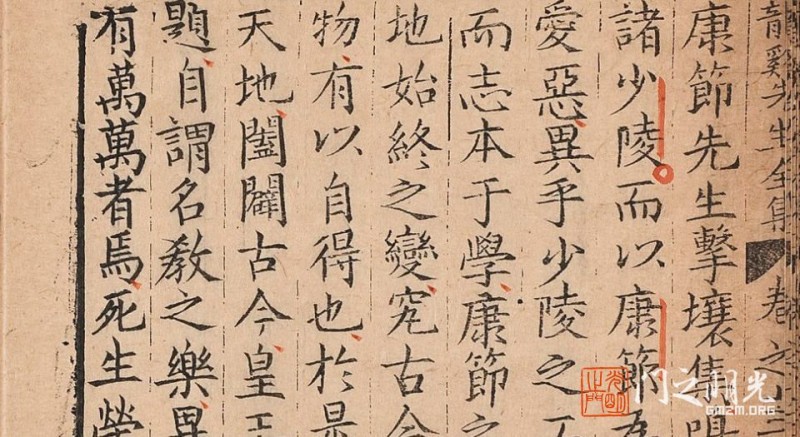 先生全集 卷之
康節先生擊壤集
諸少陵而以康節爲
愛惡異乎少陵之
而志本于學康節之
地始終之變究古今
物有以自得也於是
天地闔闢古今皇王
題自謂名教之樂異
有萬萬者焉死生榮
光明之門
光明之门
GMZM.ORG